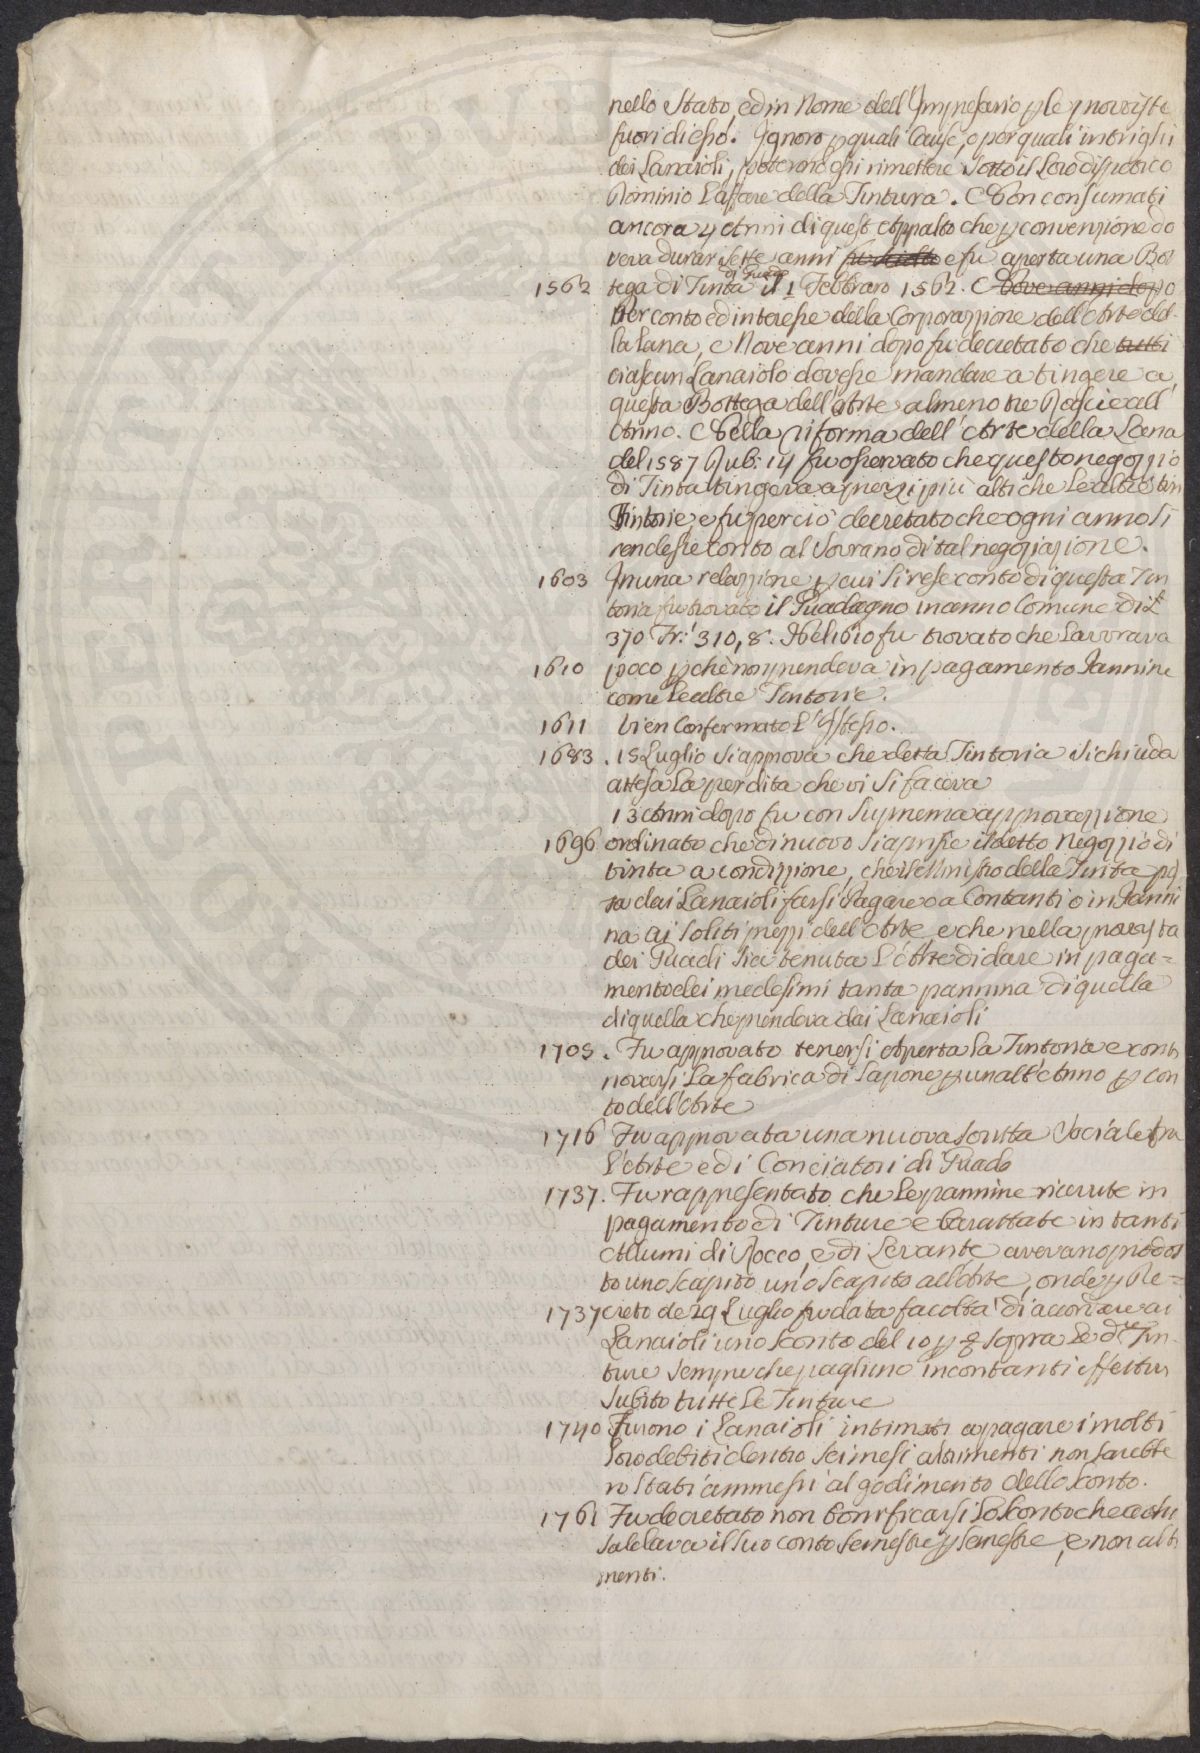 nello Stato, ed in Nome dell'Impresario p le provviste
fuori di esso. Ignoro p quali Cause, o per quali intrighi
dei Lanaioli, poterno essi rimettere sotto il Loro dispotico
Dominio L'affare della Tintura. Non consumati
ancora 4 Anni di quest'Appalto che p convenzione do
veva durar sette anni fu sciolto e fu aperta una Bot
di Guado
1562 tega di Tinta il 1 Febbraro 1562. Nove anni dopo
Per conto ed interesse della Corporazzione dell'Arte del
la Lana, e Nove anni dopo fu decretato che tutti
ciascun Lanaiolo dovesse mandare a tingere a
questa Bottega dell'Arte almeno tre Rascie all'
Anno. Nella riforma dell'Arte della Lana
del 1587 Rub: 14 fu osservato che questo negozzio
di Tinta tingeva a prezzi più alti che Le altre tin
Tintorie, e fu perciò decretato che ogni anno si
rendesse conto al Sovrano di tal negoziazione.
1603 In una relazzione p cui si rese conto di questa Tin
toria fu trovato il Guadagno in anno Comune di L
370 Fr: 310,8. Nel 1610 fu trovato che Lavorava
1610 poco p chè non prendeva in pagamento Pannine
come Le altre Tintorie.
1611 Vien Confermato L'Istesso.
1683. 15 Luglio Si approva che detta Tintoria si chiuda
attesa La perdita che vi si faceva
13 Anni dopo fu con suprema approvazzione
1696 ordinato che di nuovo si aprisse il detto Negozzio di
tinta a condizzione, che il Ministro della Tinta pos
sa dai Lanaioli farsi Pagare o a Contanti o in Panni
na ai soliti prezzi dell'Arte, e che nella provvista
dei Guadi sia tenuta L'Arte di dare in paga=
mento dei medesimi tanta pannina di quella
di quella che prendeva dai Lanaioli
1705. Fu approvato tenersi Aperta La Tintoria e conti
novarsi La fabrica di Sapone p un alt'Anno p con
to dell'Arte
1716 Fu approvata una nuova Scritta Sociale fra
L'Arte ed i Conciatori di Guado
1737. Fu rappresentato che Le pannine ricevute in
pagamento di Tinture e barattate in tanti
Allumi di Rocco, e di Levante avevano prodot
to uno scapito uno scapito all'Arte, onde p De=
1737 creto de 29 Luglio fu data facoltà di accordare ai
Lanaioli uno sconto del 10 p % sopra Le de Tin
ture sempre che paghino in contanti effettivi
Subito tutte Le Tinture
1740 Furono i Lanaioli intimati a pagare i molti
Loro debiti dentro sei mesi altrimenti non sarebbe
ro stati ammessi al godimento dello Sconto.
1761 Fu decretato non bonificarsi Lo Sconto che a chi
saldava il suo conto semestre p semestre, e non altri
menti.